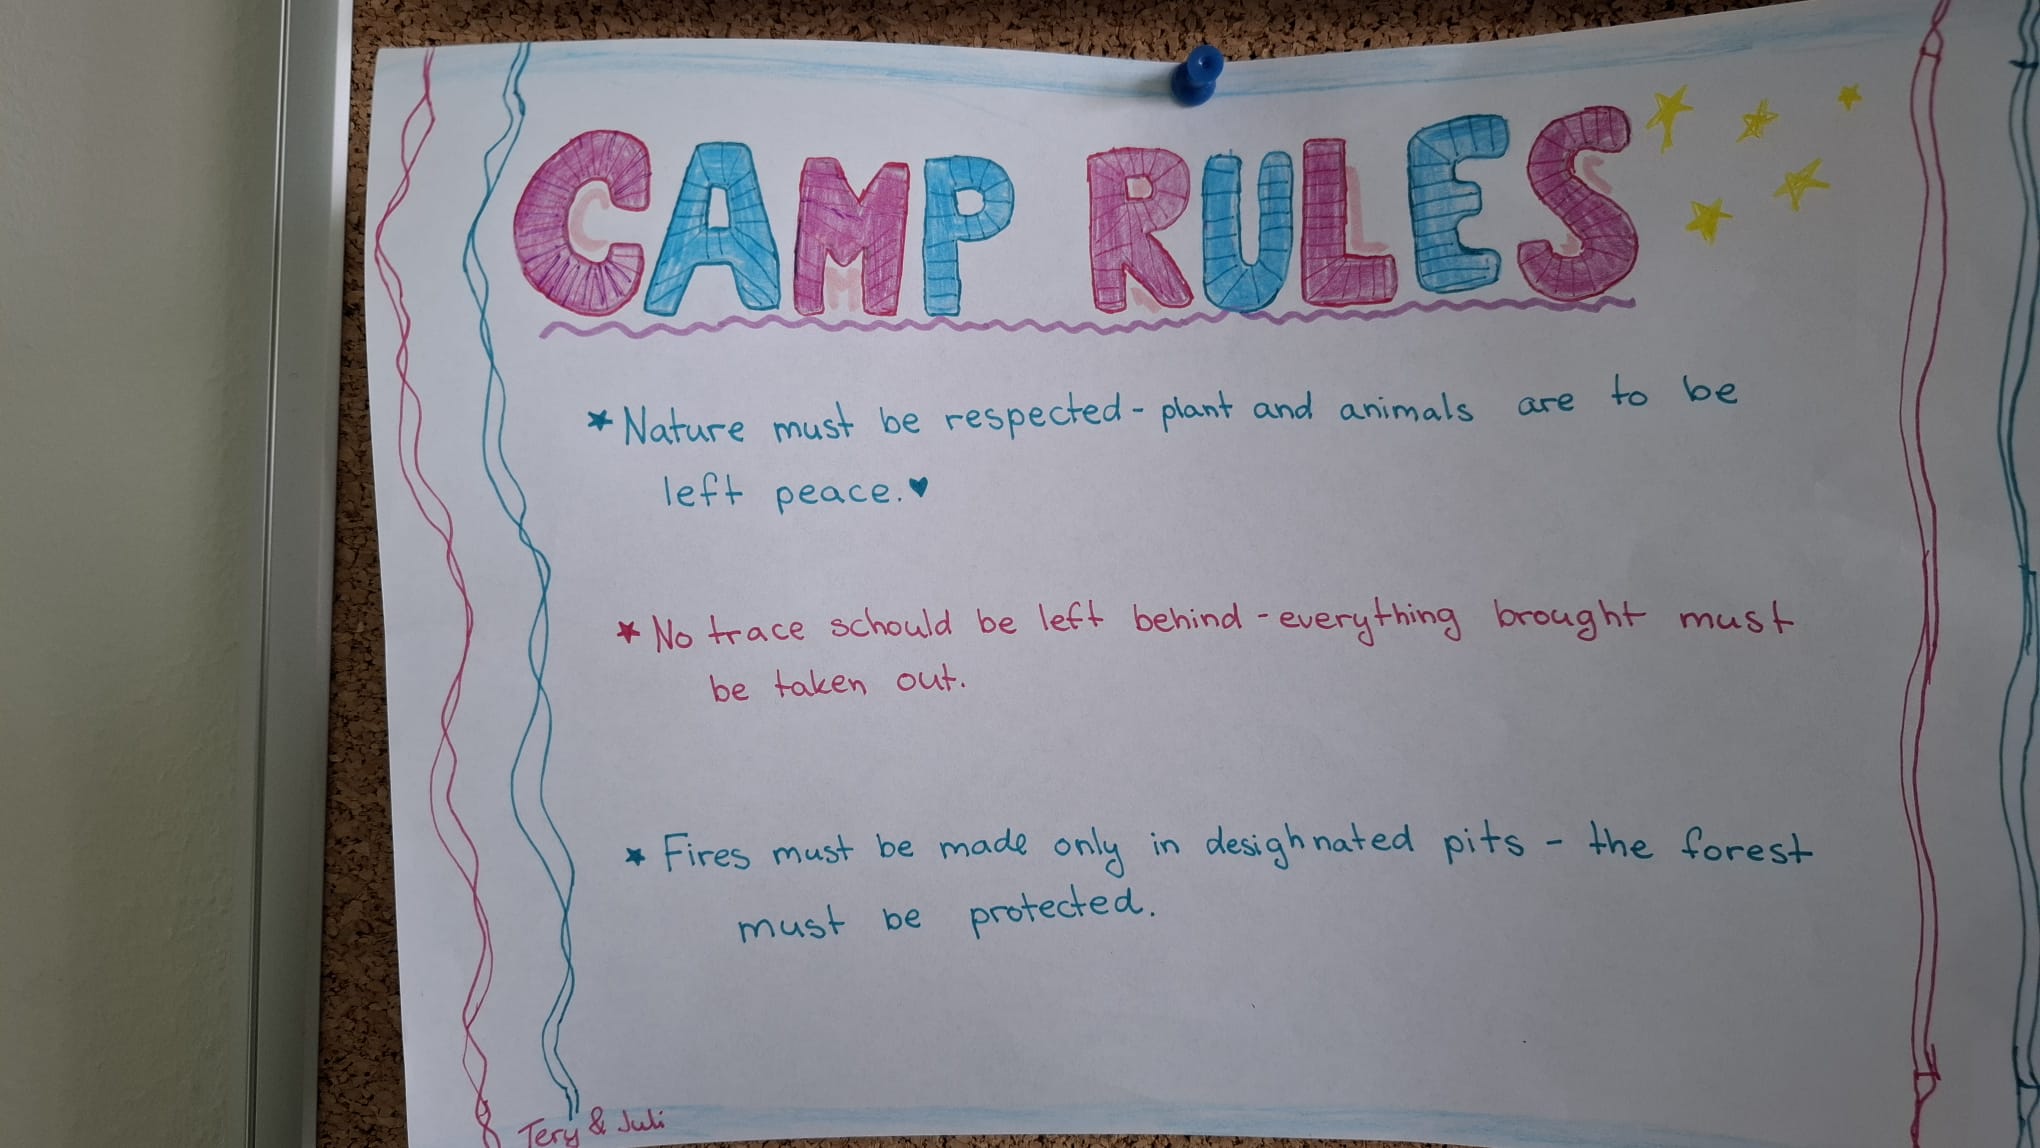 CAMP RULES
* Nature must be respected - plant and animals are to be
left peace. ♥
* No trace schould be left behind - everything brought must
be taken out.
* Fires must be made only in desighnated pits - the forest
must be protected.
Tery & Juli